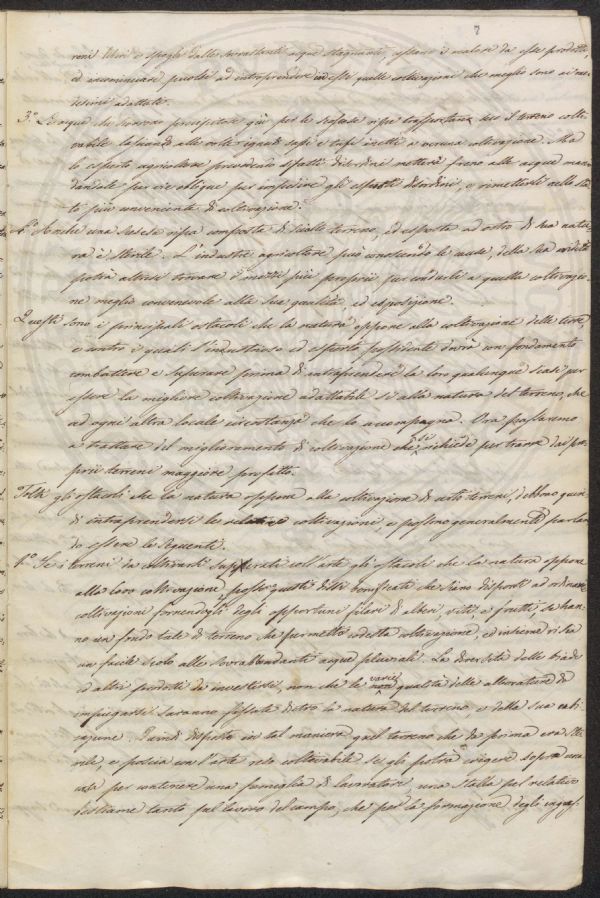 7
reni liberi e spogli dalle sovrabbondanti acque stagnanti, cessano i malori da esse prodotti,
ed incominciare puossi ad intraprendere in essi quelle coltivazioni che meglio sono ai me-
desimi adattate.
3.° L'acque che sovrane precipitare giù per le scoscese ripe trasportano seco il terreno colti-
vabile lasciando alle volte ignudi sassi e tufi inetti a veruna coltivazione. Ma
lo esperto agricoltore prevedendo siffatti disordini metterà freno alle acque man-
dandole per vie oblique per impedire gli esposti disordini, e rimetterli nello sta-
to più conveniente di coltivazione.
4.° Anche una scoscesa ripa composta di sciolto terreno, ed esposta ad ostro di sua natu-
ra è sterile. L'industre agricoltore può conoscendo le cause della sua
potrà altresì trovare i mezzi più proprii per condurli a quella coltivazio-
ne meglio convenevole alla sua qualità ed esposizione.
Questi sono i principali ostacoli che la natura oppone alla coltivazione delle terre,
e contro i quali l'industrioso ed esperto possidente dovrà con fondamento
combattere e superare prima di intraprendere la loro qualunque siasi per
essere la migliore coltivazione adattabile sì alla natura del terreno, che
ad ogni altra locale circostanza che lo accompagna. Ora passaremo
a trattare del miglioramento di coltivazione che si richiede per trarre dai pro-
prii terreni maggiore profitto.
Tolti gli ostacoli che la natura oppone alla coltivazione di certi terreni, debbono quin-
di intraprendersi le relative coltivazioni, e possono generalmente parlan-
do essere le seguenti.
1.° Se i terreni da coltivarsi superati coll'arte gli ostacoli che la natura oppone
alla loro coltivazione, possono questi dirsi bonificati che siano disposti ad ordinaria
coltivazione fornendogli degli opportuni filari di alberi, viti e frutti, se han-
no un fondo tale di terreno che permetta codesta coltivazione, ed insieme vi sia
un facile scolo alle sovrabbondanti acque pluviali. La diversità delle biade
ed altri prodotti da investirsi, non che le varie qualità delle alberature da
impiegarsi saranno fissate dietro la natura del terreno, e della sua ubi-
cazione. Quindi disposto in tal maniera quel terreno che da prima era ste-
rile, e poscia coll'arte reso coltivabile se gli potrà erigere sopra una
casa per contenere una famiglia di lavoratori, una stalla pel relativo
bestiame tanto pel lavoro del campo, che per la formazione degli ingras-